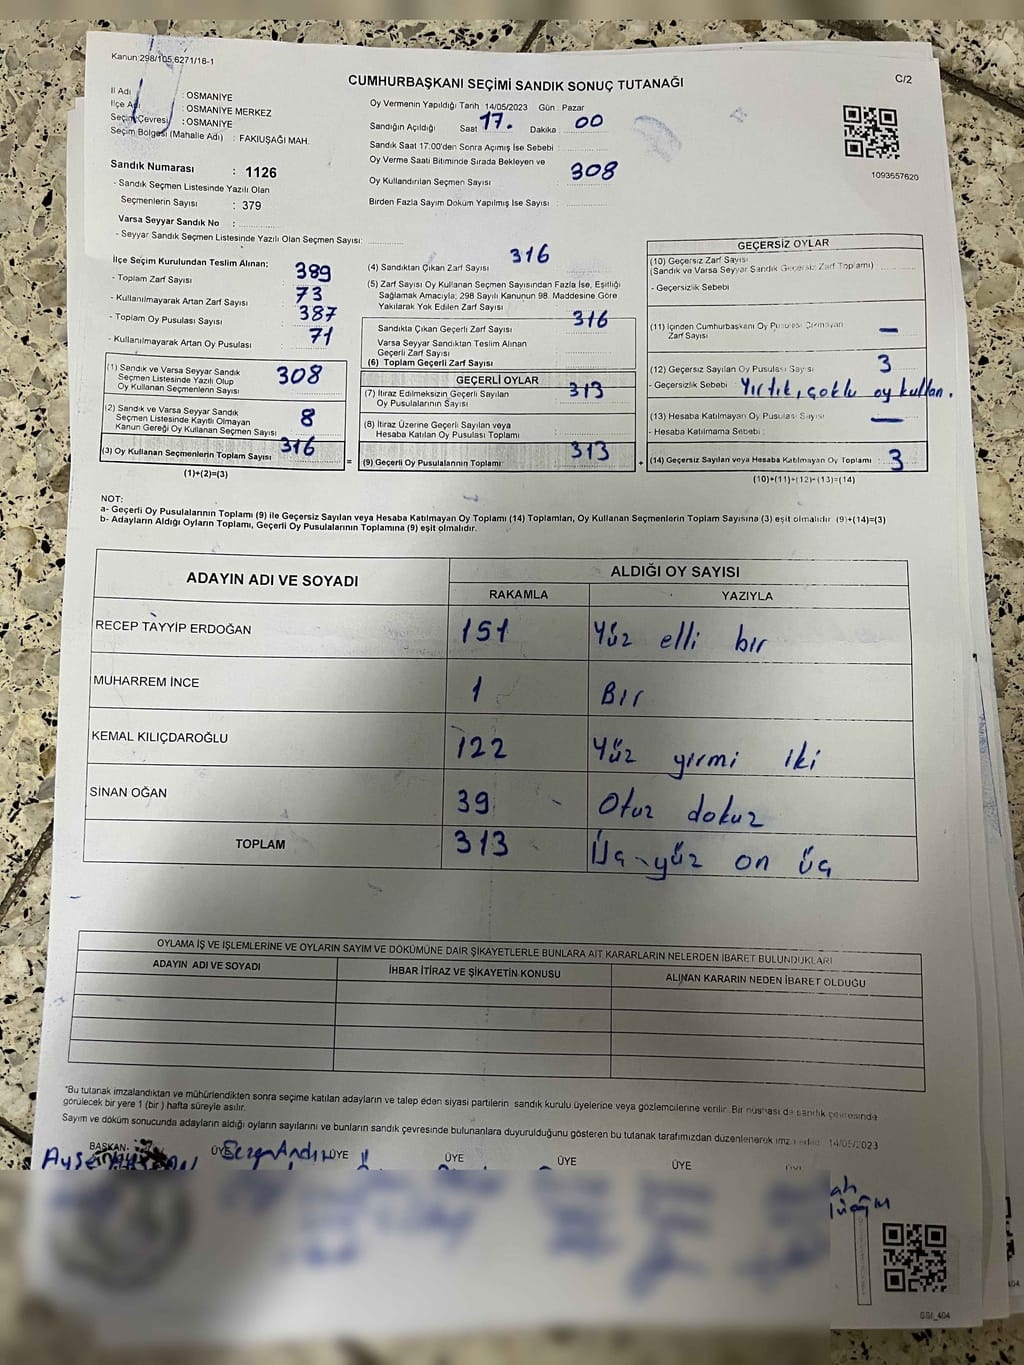 Kanun:298/105,6271/16-1
CUMHURBAŞKANI SEÇİMİ SANDIK SONUÇ TUTANAĞI
C/2
İl Adı : OSMANİYE
İlçe Adı : OSMANİYE MERKEZ
Seçim Çevresi : OSMANİYE
Seçim Bölgesi (Mahalle Adı) : FAKIUŞAĞI MAH.
Sandık Numarası : 1126
- Sandık Seçmen Listesinde Yazılı Olan
Seçmenlerin Sayısı : 379
Varsa Seyyar Sandık No :
- Seyyar Sandık Seçmen Listesinde Yazılı Olan Seçmen Sayısı:
Oy Vermenin Yapıldığı Tarih 14/05/2023 Gün : Pazar
Sandığın Açıldığı Saat 17. Dakika : 00
Sandık Saat 17:00'den Sonra Açılmış İse Sebebi :
Oy Verme Saati Bitiminde Sırada Bekleyen ve
Oy Kullandırılan Seçmen Sayısı : 308
Birden Fazla Sayım Döküm Yapılmış İse Sayısı :
1093557620
İlçe Seçim Kurulundan Teslim Alınan;
- Toplam Zarf Sayısı : 389
- Kullanılmayarak Artan Zarf Sayısı : 73
- Toplam Oy Pusulası Sayısı : 387
- Kullanılmayarak Artan Oy Pusulası : 71
(1) Sandık ve Varsa Seyyar Sandık
Seçmen Listesinde Yazılı Olup
Oy Kullanan Seçmenlerin Sayısı : 308
(2) Sandık ve Varsa Seyyar Sandık
Seçmen Listesinde Kayıtlı Olmayan
Kanun Gereği Oy Kullanan Seçmen Sayısı : 8
(3) Oy Kullanan Seçmenlerin Toplam Sayısı : 316
(1)+(2)=(3)
(4) Sandıktan Çıkan Zarf Sayısı : 316
(5) Zarf Sayısı Oy Kullanan Seçmen Sayısından Fazla İse, Eşitliği
Sağlamak Amacıyla; 298 Sayılı Kanunun 98. Maddesine Göre
Yakılarak Yok Edilen Zarf Sayısı :
Sandıkta Çıkan Geçerli Zarf Sayısı : 316
Varsa Seyyar Sandıktan Teslim Alınan
Geçerli Zarf Sayısı :
(6) Toplam Geçerli Zarf Sayısı :
GEÇERLİ OYLAR
(7) İtiraz Edilmeksizin Geçerli Sayılan
Oy Pusulalarının Sayısı : 313
(8) İtiraz Üzerine Geçerli Sayılan veya
Hesaba Katılan Oy Pusulası Toplamı :
= (9) Geçerli Oy Pusulalarının Toplamı : 313 +
GEÇERSİZ OYLAR
(10) Geçersiz Zarf Sayısı
(Sandık ve Varsa Seyyar Sandık Geçersiz Zarf Toplamı) :
- Geçersizlik Sebebi :
(11) İçinden Cumhurbaşkanı Oy Pusulası Çıkmayan
Zarf Sayısı : –
(12) Geçersiz Sayılan Oy Pusulası Sayısı : 3
- Geçersizlik Sebebi : Yırtık, çoklu oy kullan.
(13) Hesaba Katılmayan Oy Pusulası Sayısı : –
- Hesaba Katılmama Sebebi :
(14) Geçersiz Sayılan veya Hesaba Katılmayan Oy Toplamı : 3
(10)+(11)+(12)+(13)=(14)
NOT:
a- Geçerli Oy Pusulalarının Toplamı (9) ile Geçersiz Sayılan veya Hesaba Katılmayan Oy Toplamı (14) Toplamları, Oy Kullanan Seçmenlerin Toplam Sayısına (3) eşit olmalıdır. (9)+(14)=(3)
b- Adayların Aldığı Oyların Toplamı, Geçerli Oy Pusulalarının Toplamına (9) eşit olmalıdır.
ADAYIN ADI VE SOYADI
ALDIĞI OY SAYISI
RAKAMLA YAZIYLA
RECEP TAYYİP ERDOĞAN 151 Yüz elli bir
MUHARREM İNCE 1 Bir
KEMAL KILIÇDAROĞLU 122 Yüz yirmi iki
SİNAN OĞAN 39 Otuz dokuz
TOPLAM 313 Üç yüz on üç
OYLAMA İŞ VE İŞLEMLERİNE VE OYLARIN SAYIM VE DÖKÜMÜNE DAİR ŞİKAYETLERLE BUNLARA AİT KARARLARIN NELERDEN İBARET BULUNDUKLARI
ADAYIN ADI VE SOYADI
İHBAR İTİRAZ VE ŞİKAYETİN KONUSU
ALINAN KARARIN NEDEN İBARET OLDUĞU
"Bu tutanak imzalandıktan ve mühürlendikten sonra seçime katılan adayların ve talep eden siyasi partilerin sandık kurulu üyelerine veya gözlemcilerine verilir. Bir nüshası da sandık çevresinde
görülecek bir yere 1 (bir) hafta süreyle asılır.
Sayım ve döküm sonucunda adayların aldığı oyların sayılarını ve bunların sandık çevresinde bulunanlara duyurulduğunu gösteren bu tutanak tarafımızdan düzenlenerek imza edildi. 14/05/2023
BAŞKAN ÜYE ÜYE ÜYE ÜYE ÜYE ÜYE
SSI_404